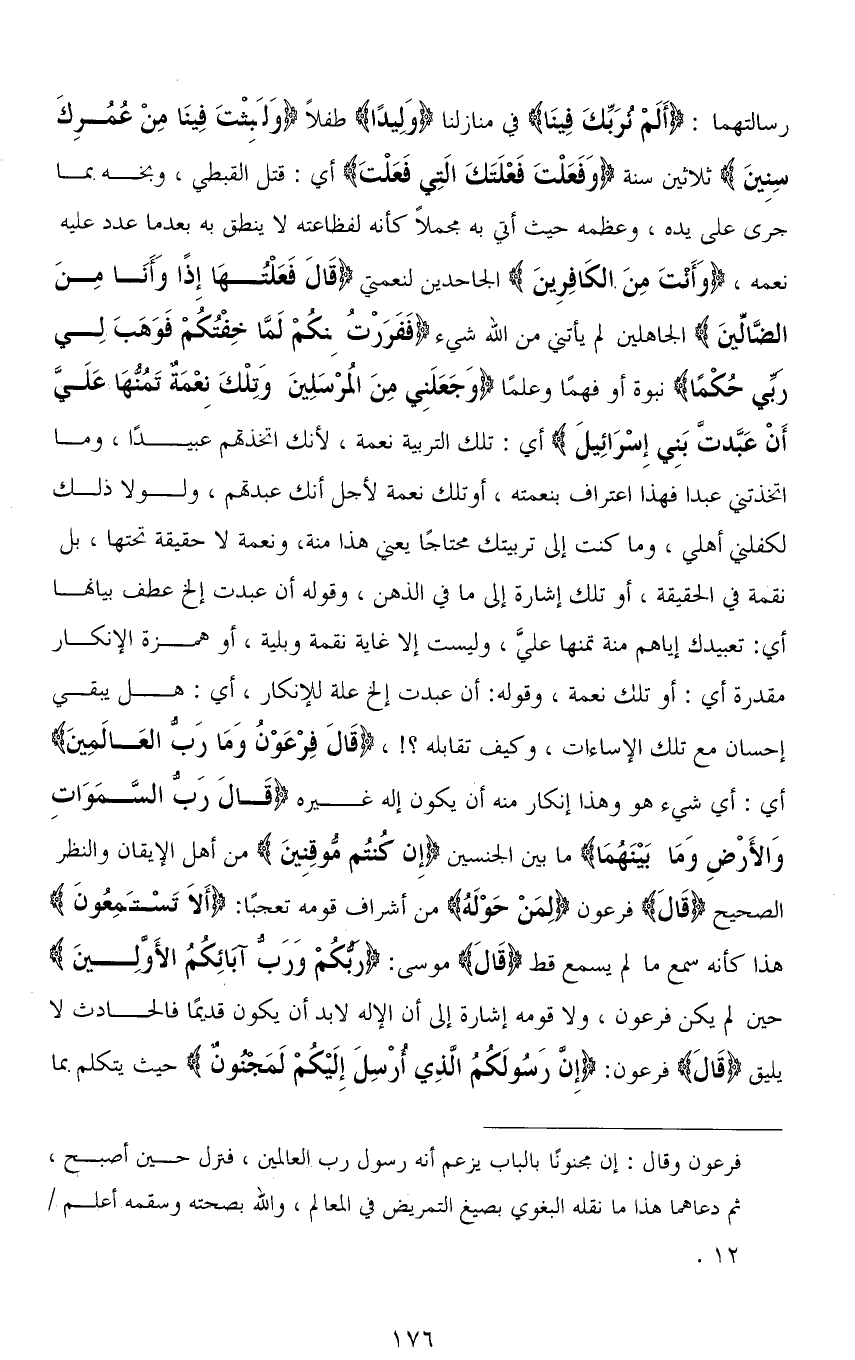 رسالتهما : ﴿أَلَمْ نُرَبِّكَ فِينَا﴾ في منازلنا ﴿وَلِيدًا﴾ طفلاً ﴿وَلَبِثْتَ فِينَا مِنْ عُمُــرِكَ
سِنِينَ ﴾ ثلاثين سنة ﴿وَفَعَلْتَ فَعْلَتَكَ الَتِي فَعَلْتَ﴾ أي : قتل القبطي ، وبخــه بمــا
جرى على يده ، وعظمه حيث أتي به مجملاً كأنه لفظاعته لا ينطق به بعدما عدد عليه
نعمه ، ﴿وَأَنْتَ مِنَ الكَافِرِينَ ﴾ الجاحدين لنعمتي ﴿قَالَ فَعَلْتُــهَا إِذًا وَأَنَــا مِــنَ
الضَّالِّينَ ﴾ الجاهلين لم يأتني من الله شيء ﴿فَفَرَرْتُ مِنكُمْ لَمَّا خِفْتُكُمْ فَوَهَبَ لِــي
رَبِّي حُكْمًا﴾ نبوة أو فهمًا وعلمًا ﴿وَجَعَلَنِي مِنَ الُمرْسَلِينَ وَتِلْكَ نِعْمَةٌ تَمُنُّهَا عَلَــيَّ
أَنْ عَبَّدتَّ بَنِي إِسْرَائِيلَ ﴾ أي : تلك التربية نعمة ، لأنك اتخذتهم عبيــدًا ، ومــا
اتخذتني عبدا فهذا اعتراف بنعمته ، أوتلك نعمة لأجل أنك عبدتهم ، ولــولا ذلــك
لكفلني أهلي ، وما كنت إلى تربيتك محتاجًا يعني هذا منة، ونعمة لا حقيقة تحتها ، بل
نقمة في الحقيقة ، أو تلك إشارة إلى ما في الذهن ، وقوله أن عبدت إلخ عطف بيانهــا
أي: تعبيدك إياهم منة تمنها عليَّ ، وليست إلا غاية نقمة وبلية ، أو همــزة الإنكــار
مقدرة أي : أو تلك نعمة ، وقوله: أن عبدت إلخ علة للإنكار ، أي : هــل يبقي
إحسان مع تلك الإساءات ، وكيف تقابله ؟! ، ﴿قَالَ فِرْعَوْنُ وَمَا رَبُّ العَــالَمِينَ﴾
أي : أي شيء هو وهذا إنكار منه أن يكون إله غــيره ﴿قَــالَ رَبُّ السَّــمَوَاتِ
وَالأَرْضِ وَمَا بَيْنَهُمَا﴾ ما بين الجنسين ﴿إِن كُنتُم مُّوقِنِينَ ﴾ من أهل الإيقان والنظر
الصحيح ﴿قَالَ﴾ فرعون ﴿لِمَنْ حَوْلَهُ﴾ من أشراف قومه تعجبًا: ﴿أَلاَ تَسْــتَمِعُونَ ﴾
هذا كأنه سمع ما لم يسمع قط ﴿قَالَ﴾ موسى: ﴿رَبُّكُمْ وَرَبُّ آبَائِكُمُ الأَوَّلِــينَ ﴾
حين لم يكن فرعون ، ولا قومه إشارة إلى أن الإله لابد أن يكون قديمًا فالحــادث لا
يليق ﴿قَالَ﴾ فرعون: ﴿إِنَّ رَسُولَكُمُ الَّذِي أُرْسِلَ إِلَيْكُمْ لَمَجْنُونٌ ﴾ حيث يتكلم بما
فرعون وقال : إن مجنونًا بالباب يزعم أنه رسول رب العالمين ، فنزل حــين أصبــح ،
ثم دعاهما هذا ما نقله البغوي بصيغ التمريض في المعالم ، والله بصحته وسقمه أعلــم /
١٢ .
١٧٦